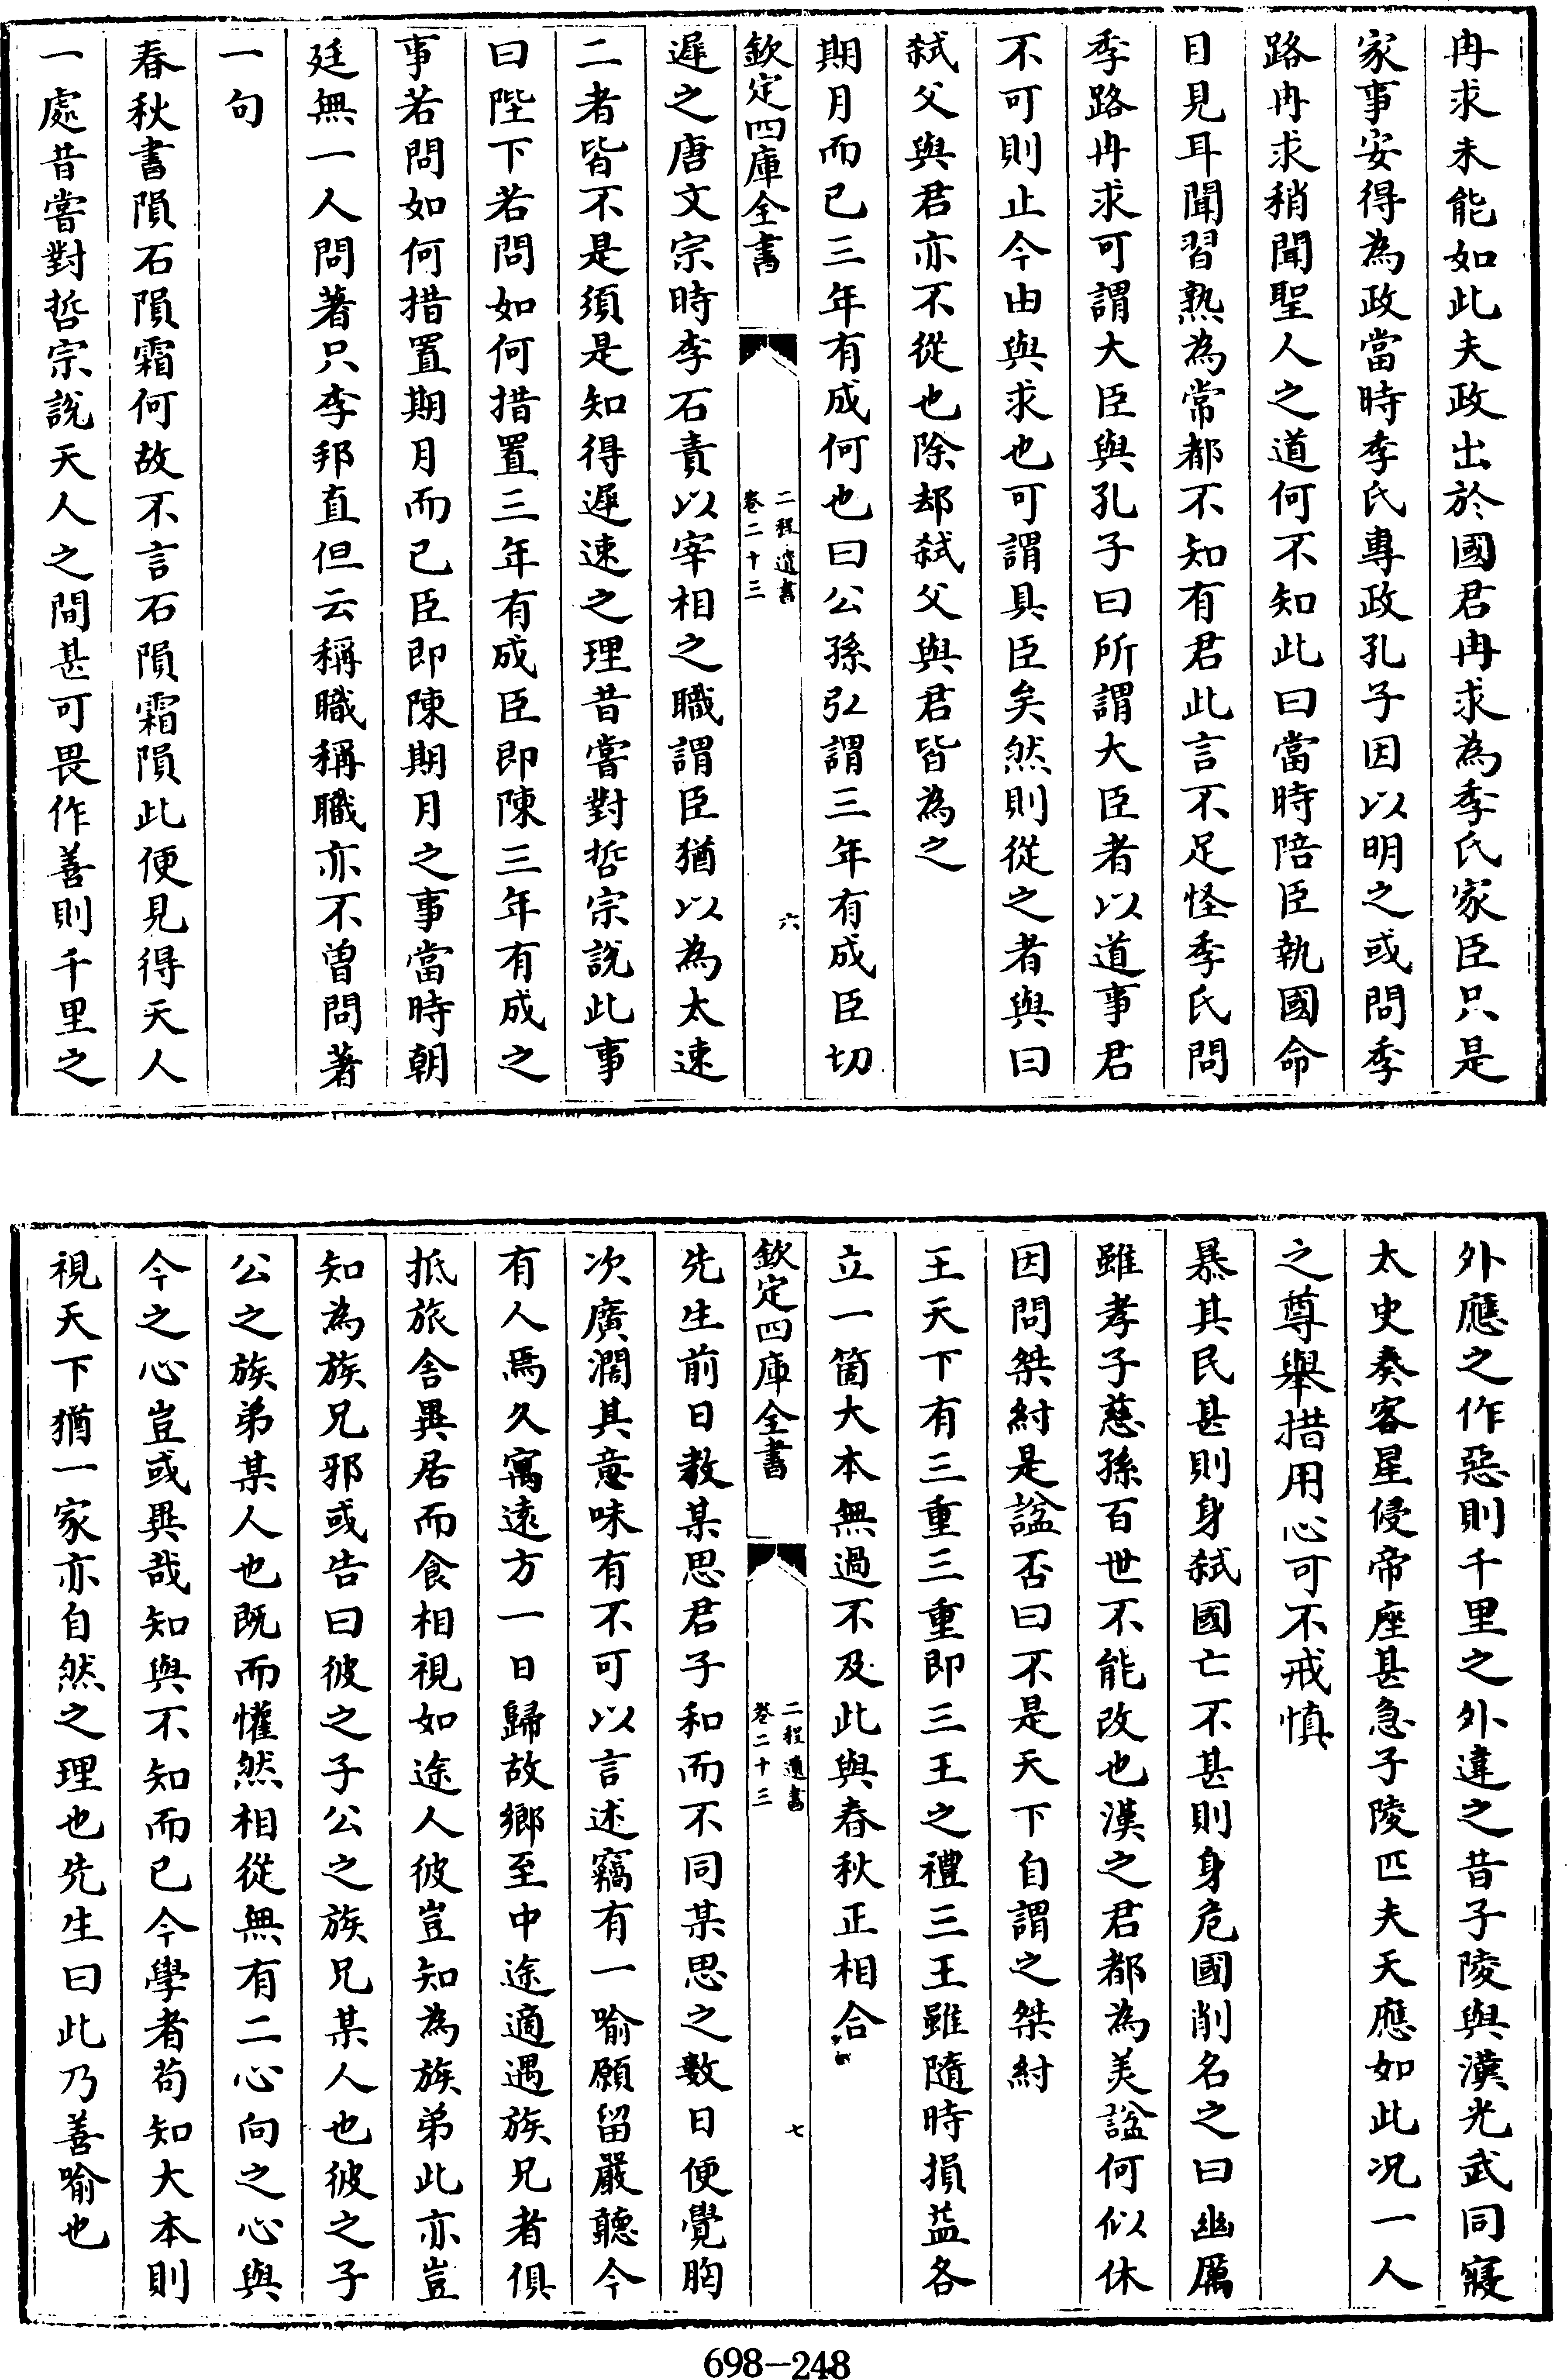 冉求未能如此夫政出於國君冉求為季氏家臣只是
家事安得為政當時季氏專政孔子因以明之或問季
路冉求稍聞聖人之道何不知此曰當時陪臣執國命
目見耳聞習熟為常都不知有君此言不足怪季氏問
季路冉求可謂大臣與孔子曰所謂大臣者以道事君
不可則止今由與求也可謂具臣矣然則從之者與曰
弑父與君亦不從也除却弑父與君皆為之
期月而已三年有成何也曰公孫弘謂三年有成臣切
欽定四庫全書
二程遺書
卷二十三
六
遲之唐文宗時李石責以宰相之職謂臣猶以為太速
二者皆不是須是知得遲速之理昔嘗對哲宗說此事
曰陛下若問如何措置三年有成臣即陳三年有成之
事若問如何措置期月而已臣即陳期月之事當時朝
廷無一人問著只李邦直但云稱職稱職亦不曾問著
一句
春秋書隕石隕霜何故不言石隕霜隕此便見得天人
一處昔嘗對哲宗說天人之間甚可畏作善則千里之
外應之作惡則千里之外違之昔子陵與漢光武同寢
太史奏客星侵帝座甚急子陵匹夫天應如此况一人
之尊舉措用心可不戒慎
暴其民甚則身弑國亡不甚則身危國削名之曰幽厲
雖孝子慈孫百世不能改也漢之君都為美諡何似休
因問桀紂是諡否曰不是天下自謂之桀紂
王天下有三重三重即三王之禮三王雖隨時損益各
立一箇大本無過不及此與春秋正相合
欽定四庫全書
二程遺書
卷二十三
七
先生前日教某思君子和而不同某思之數日便覺胸
次廣濶其意味有不可以言述竊有一喻願留嚴聽今
有人焉久寓遠方一日歸故鄉至中途適遇族兄者俱
抵旅舍異居而食相視如途人彼豈知為族弟此亦豈
知為族兄邪或告曰彼之子公之族兄某人也彼之子
公之族弟某人也既而懽然相從無有二心向之心與
今之心豈或異哉知與不知而已今學者苟知大本則
視天下猶一家亦自然之理也先生曰此乃善喻也
698-248